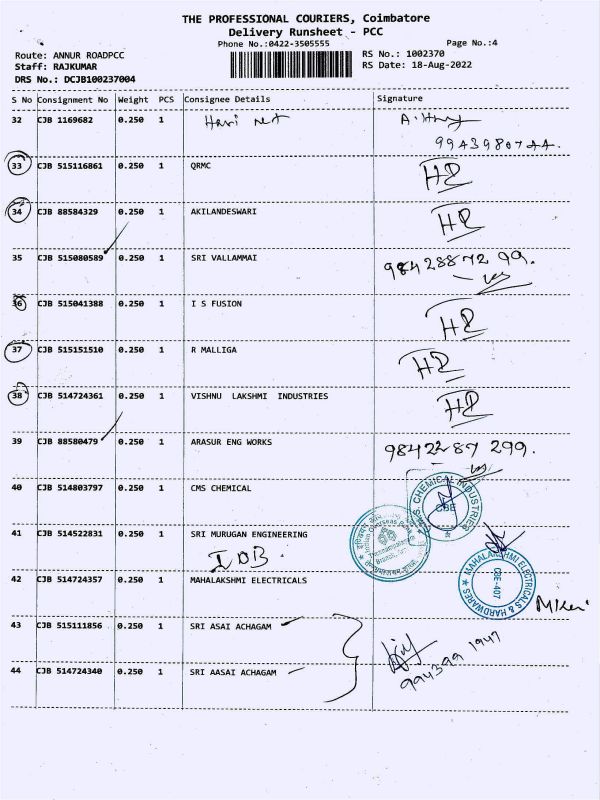 THE PROFESSIONAL COURIERS, Coimbatore
Delivery Runsheet - PCC
Phone No.:0422-3505555 Page No.:4
Route: ANNUR ROADPCC RS No.: 1002370
Staff: RAJKUMAR RS Date: 18-Aug-2022
DRS No.: DCJB100237004
S No Consignment No Weight PCS Consignee Details Signature
32 CJB 1169682 0.250 1 Hari net
9943980744.
33 CJB 515116861 0.250 1 QRMC HD
34 CJB 88584329 0.250 1 AKILANDESWARI HD
35 CJB 515080589 0.250 1 SRI VALLAMMAI 9842887299.
36 CJB 515041388 0.250 1 I S FUSION HD
37 CJB 515151510 0.250 1 R MALLIGA HD
38 CJB 514724361 0.250 1 VISHNU LAKSHMI INDUSTRIES HD
39 CJB 88580479 0.250 1 ARASUR ENG WORKS 9842287299.
40 CJB 514803797 0.250 1 CMS CHEMICAL
CHEMICAL INDUSTRIES
CBE
41 CJB 514522831 0.250 1 SRI MURUGAN ENGINEERING
IOB.
Indian Overseas Bank
42 CJB 514724357 0.250 1 MAHALAKSHMI ELECTRICALS
MAHALAKSHMI ELECTRICALS & HARDWARES
CBE-407
43 CJB 515111856 0.250 1 SRI ASAI ACHAGAM
9943991947
44 CJB 514724340 0.250 1 SRI AASAI ACHAGAM